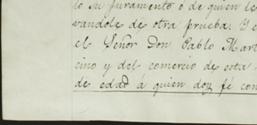 to su juramento ó de quien le
vandole de otra prueba. Y e
el Señor Don Pablo Mart
cino y del comercio de esta
de edad á quien doy fé con